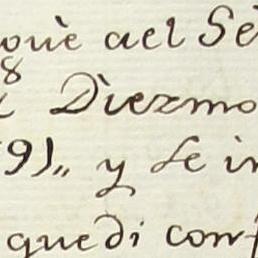 ael Sè
8
Dièzmo
9),, y se in
quedi conf